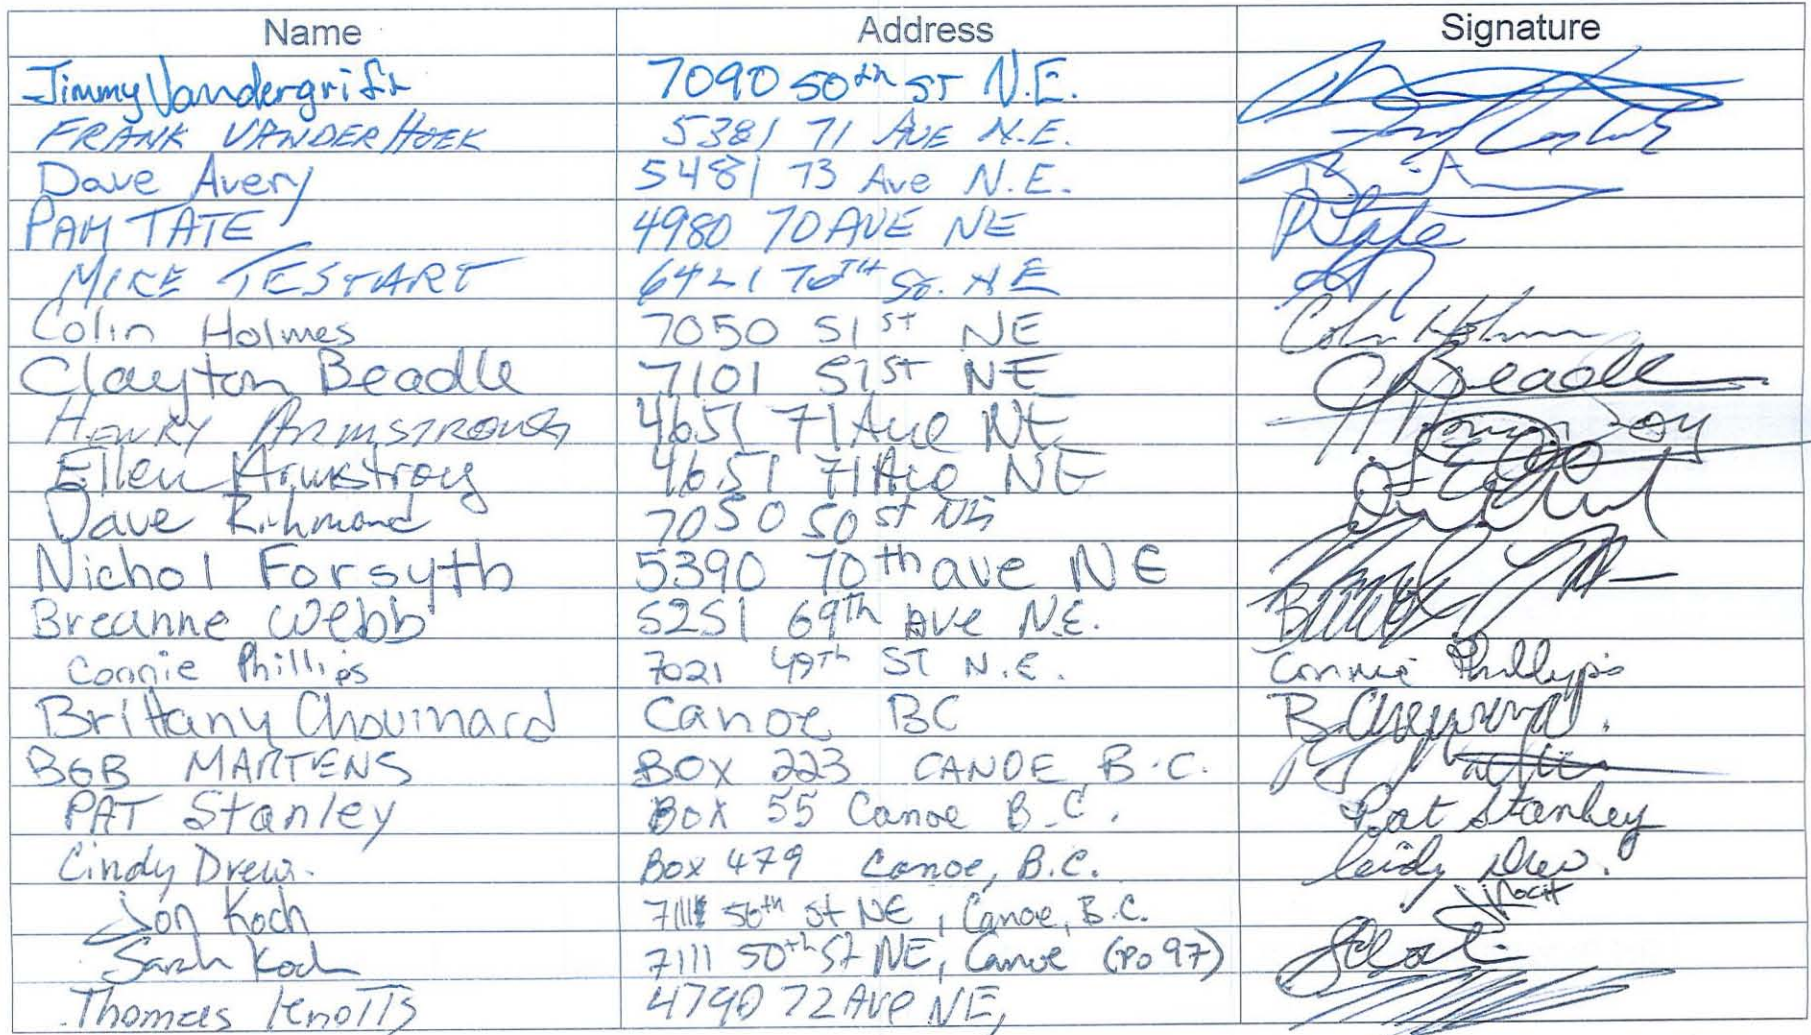 Name Address Signature
Jimmy Vandergrift 7090 50th ST N.E.
FRANK VANDERHOEK 5381 71 AVE N.E.
Dave Avery 5481 73 Ave N.E.
PAM TATE 4980 70 AVE NE P Tate
MIKE TESTART 6421 70TH St. NE
Colin Holmes 7050 51st NE Colin Holmes
Clayton Beadle 7101 51st NE C Beadle
HENRY ARMSTRONG 4651 71 Ave NE
Ellen Armstrong 4651 71 Ave NE
Dave Richmond 7050 50 st NE
Nichol Forsyth 5390 70th ave NE
Breanne Webb 5251 69Th Ave N.E.
Connie Phillips 7021 49Th ST N.E. Connie Phillips
Brittany Chouinard Canoe BC B. Chouinard.
BOB MARTENS BOX 223 CANOE B.C.
PAT Stanley Box 55 Canoe B.C. Pat Stanley
Cindy Drew. Box 479 Canoe, B.C. Cindy Drew.
Jon Koch 7111 50th St NE, Canoe, B.C. J Koch
Sarah Koch 7111 50th St NE, Canoe (PO 97)
Thomas Knotts 4790 72 Ave NE,